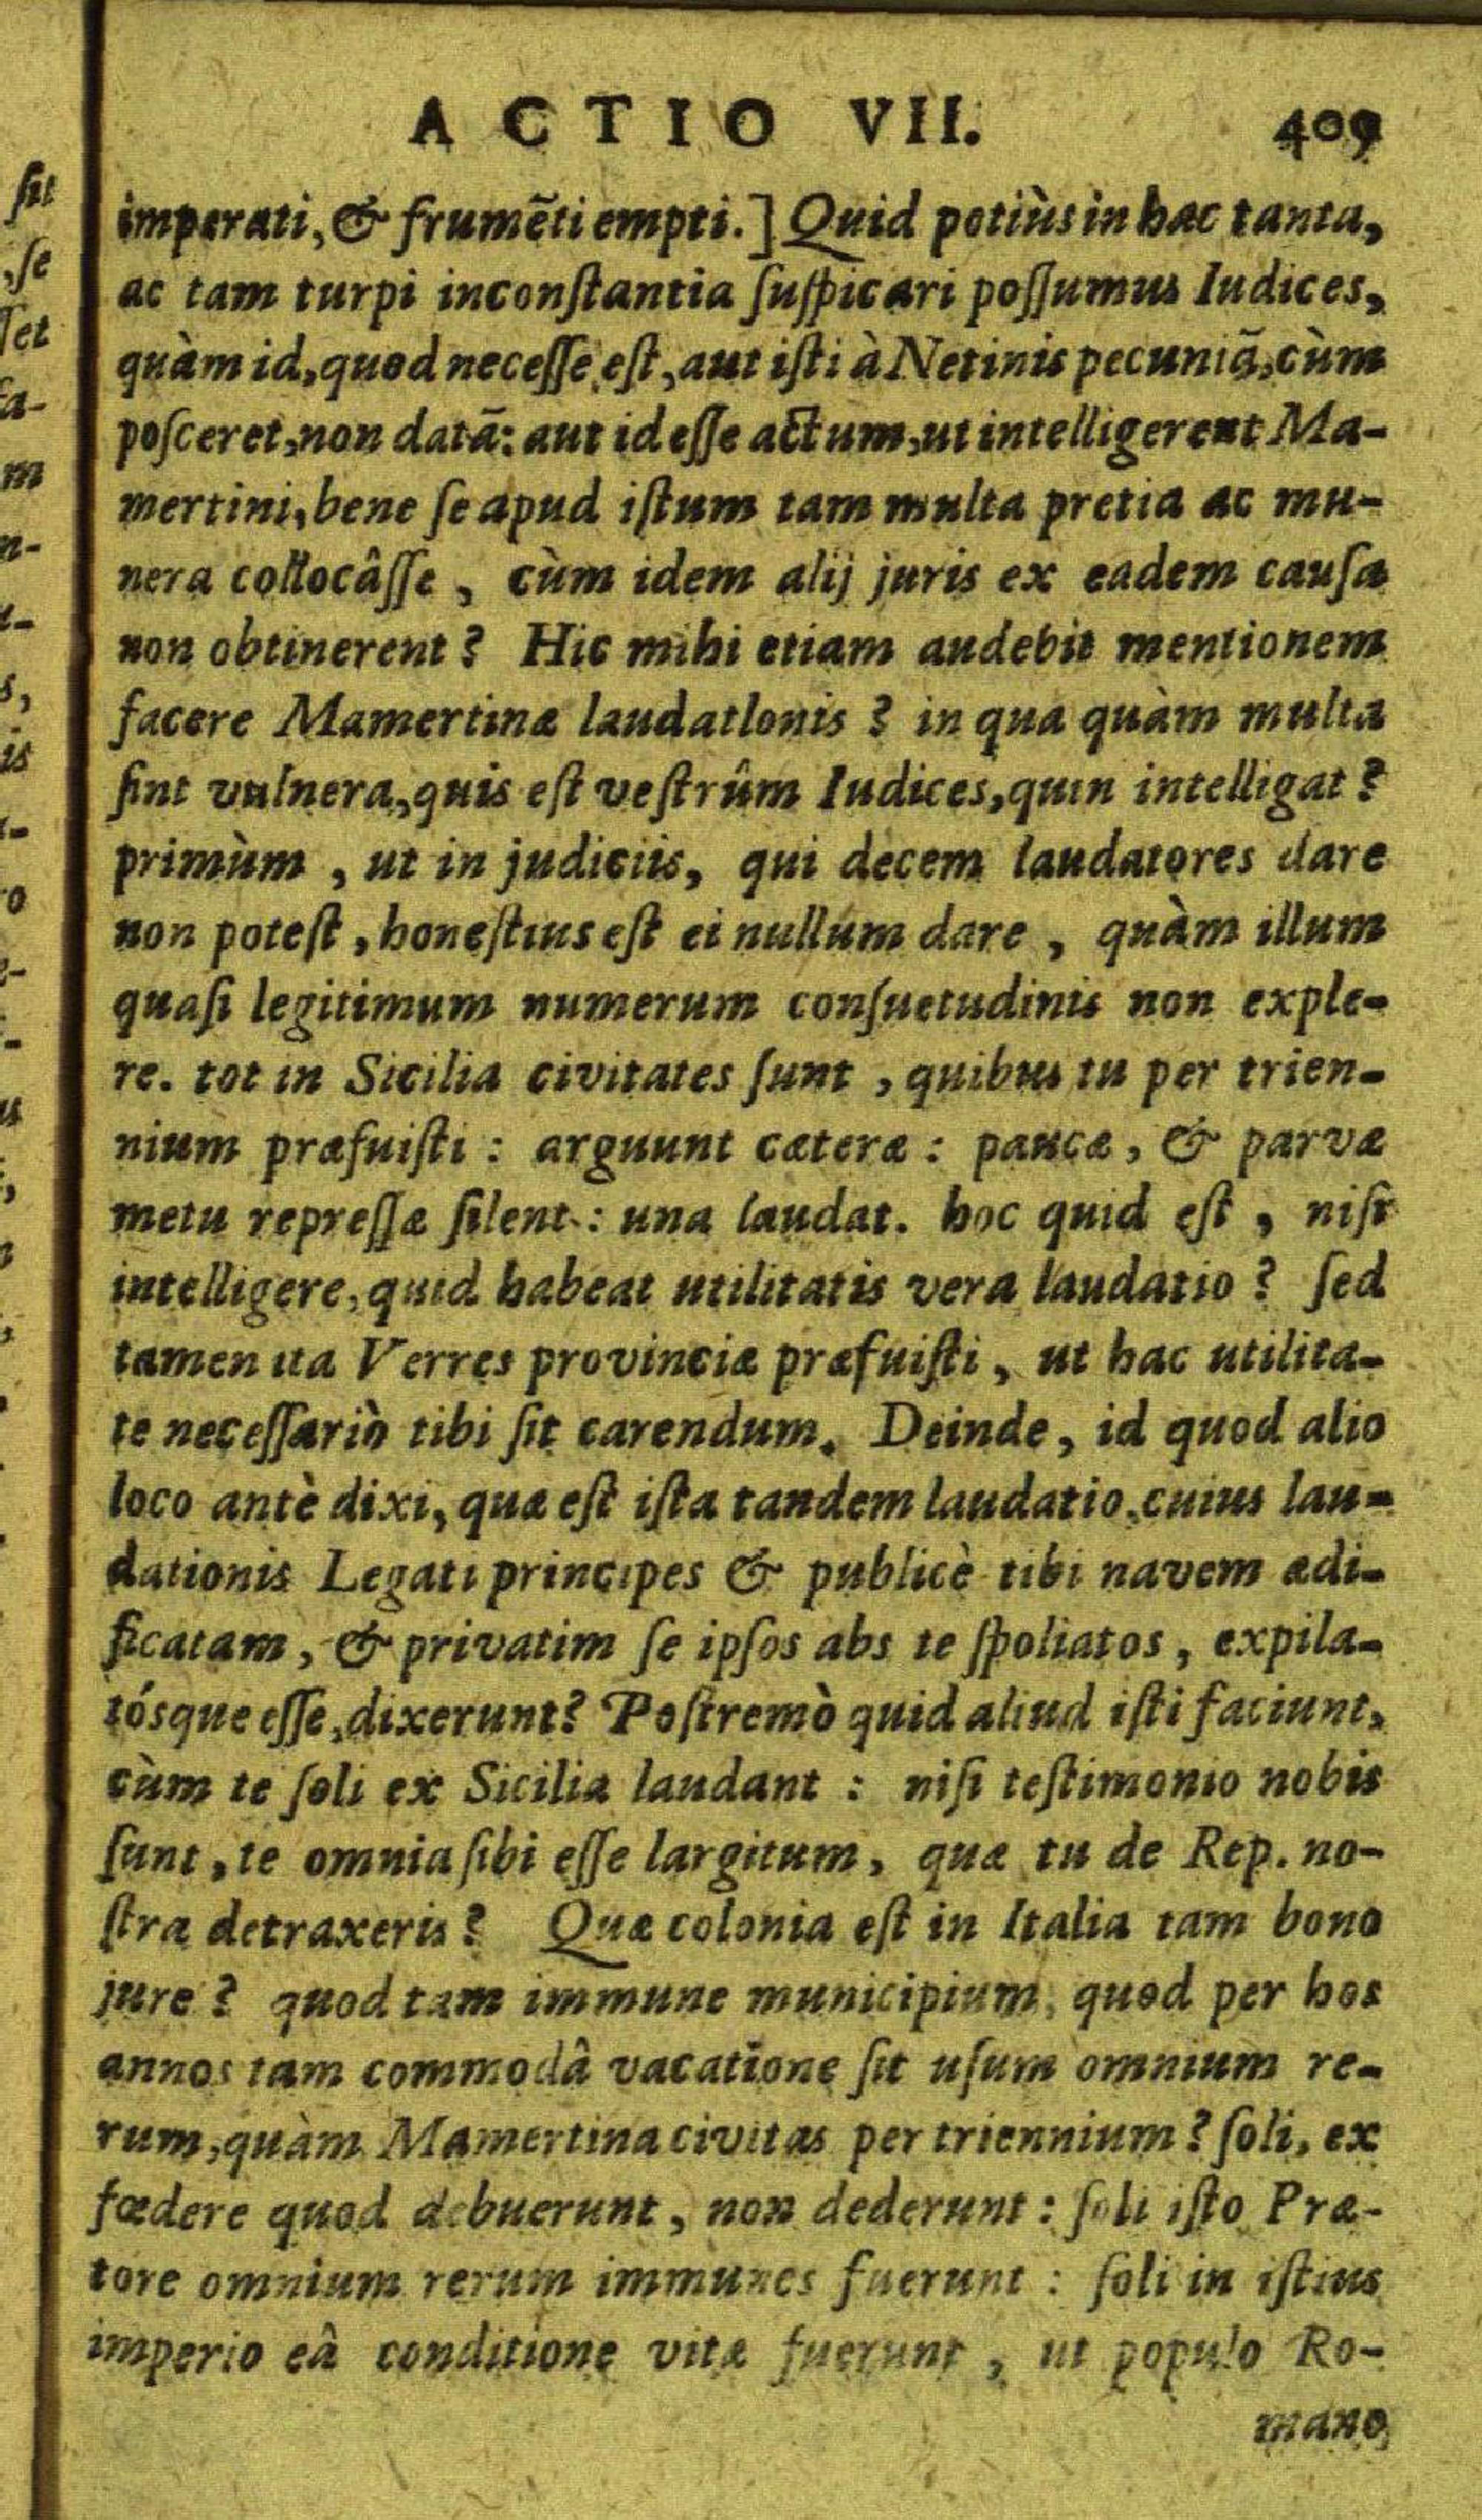 ACTIO VII. 409
imperati, & frumẽti empti.] Quid potiùs in hac tanta,
ac tam turpi inconſtantia ſuſpicari poſſumus Iudices,
quàm id, quod neceſſe eſt, aut iſti à Netinis pecuniã, cùm
poſceret, non datã: aut id eſſe actum, ut intelligerent Ma-
mertini, bene ſe apud iſtum tam multa pretia ac mu-
nera collocâſſe, cùm idem alij juris ex eadem cauſa
non obtinerent? Hic mihi etiam audebit mentionem
facere Mamertinæ laudatlonis? in qua quàm multa
ſint vulnera, quis eſt veſtrûm Iudices, quin intelligat?
primùm, ut in judiciis, qui decem laudatores dare
non poteſt, honeſtius eſt ei nullum dare, quàm illum
quaſi legitimum numerum conſuetudinis non exple-
re. tot in Sicilia civitates ſunt, quibus tu per trien-
nium præfuiſti: arguunt cæteræ: paucæ, & parvæ
metu repreſſæ ſilent: una laudat. hoc quid eſt, niſi
intelligere, quid habeat utilitatis vera laudatio? ſed
tamen ita Verres provinciæ præfuiſti, ut hac utilita-
te neceſſariò tibi ſit carendum. Deinde, id quod alio
loco antè dixi, quæ eſt iſta tandem laudatio, cuius lau-
dationis Legati principes & publicè tibi navem ædi-
ficatam, & privatim ſe ipſos abs te ſpoliatos, expila-
tósque eſſe, dixerunt? Poſtremò quid aliud iſti faciunt,
cùm te ſoli ex Sicilia laudant: niſi teſtimonio nobis
ſunt, te omnia ſibi eſſe largitum, quæ tu de Rep. no-
ſtra detraxeris? Quæ colonia eſt in Italia tam bono
jure? quod tam immune municipium, quod per hos
annos tam commodâ vacatione ſit uſum omnium re-
rum, quàm Mamertina civitas per triennium? ſoli, ex
fœdere quod debuerunt, non dederunt: ſoli iſto Præ-
tore omnium rerum immunes fuerunt: ſoli in iſtius
imperio eâ conditione vitæ fuerunt, ut populo Ro-
mano